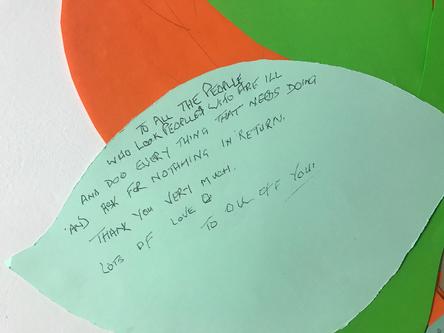 TO ALL THE PEOPLE
WHO LOOK PEOPLE WHO ARE ILL
AND DOO EVERY THING THAT NEEDS DOING
AND ASK FOR NOTHING IN RETURN.
THANK YOU VERY MUCH.
LOTS OF LOVE TO OLL OFF YOU.